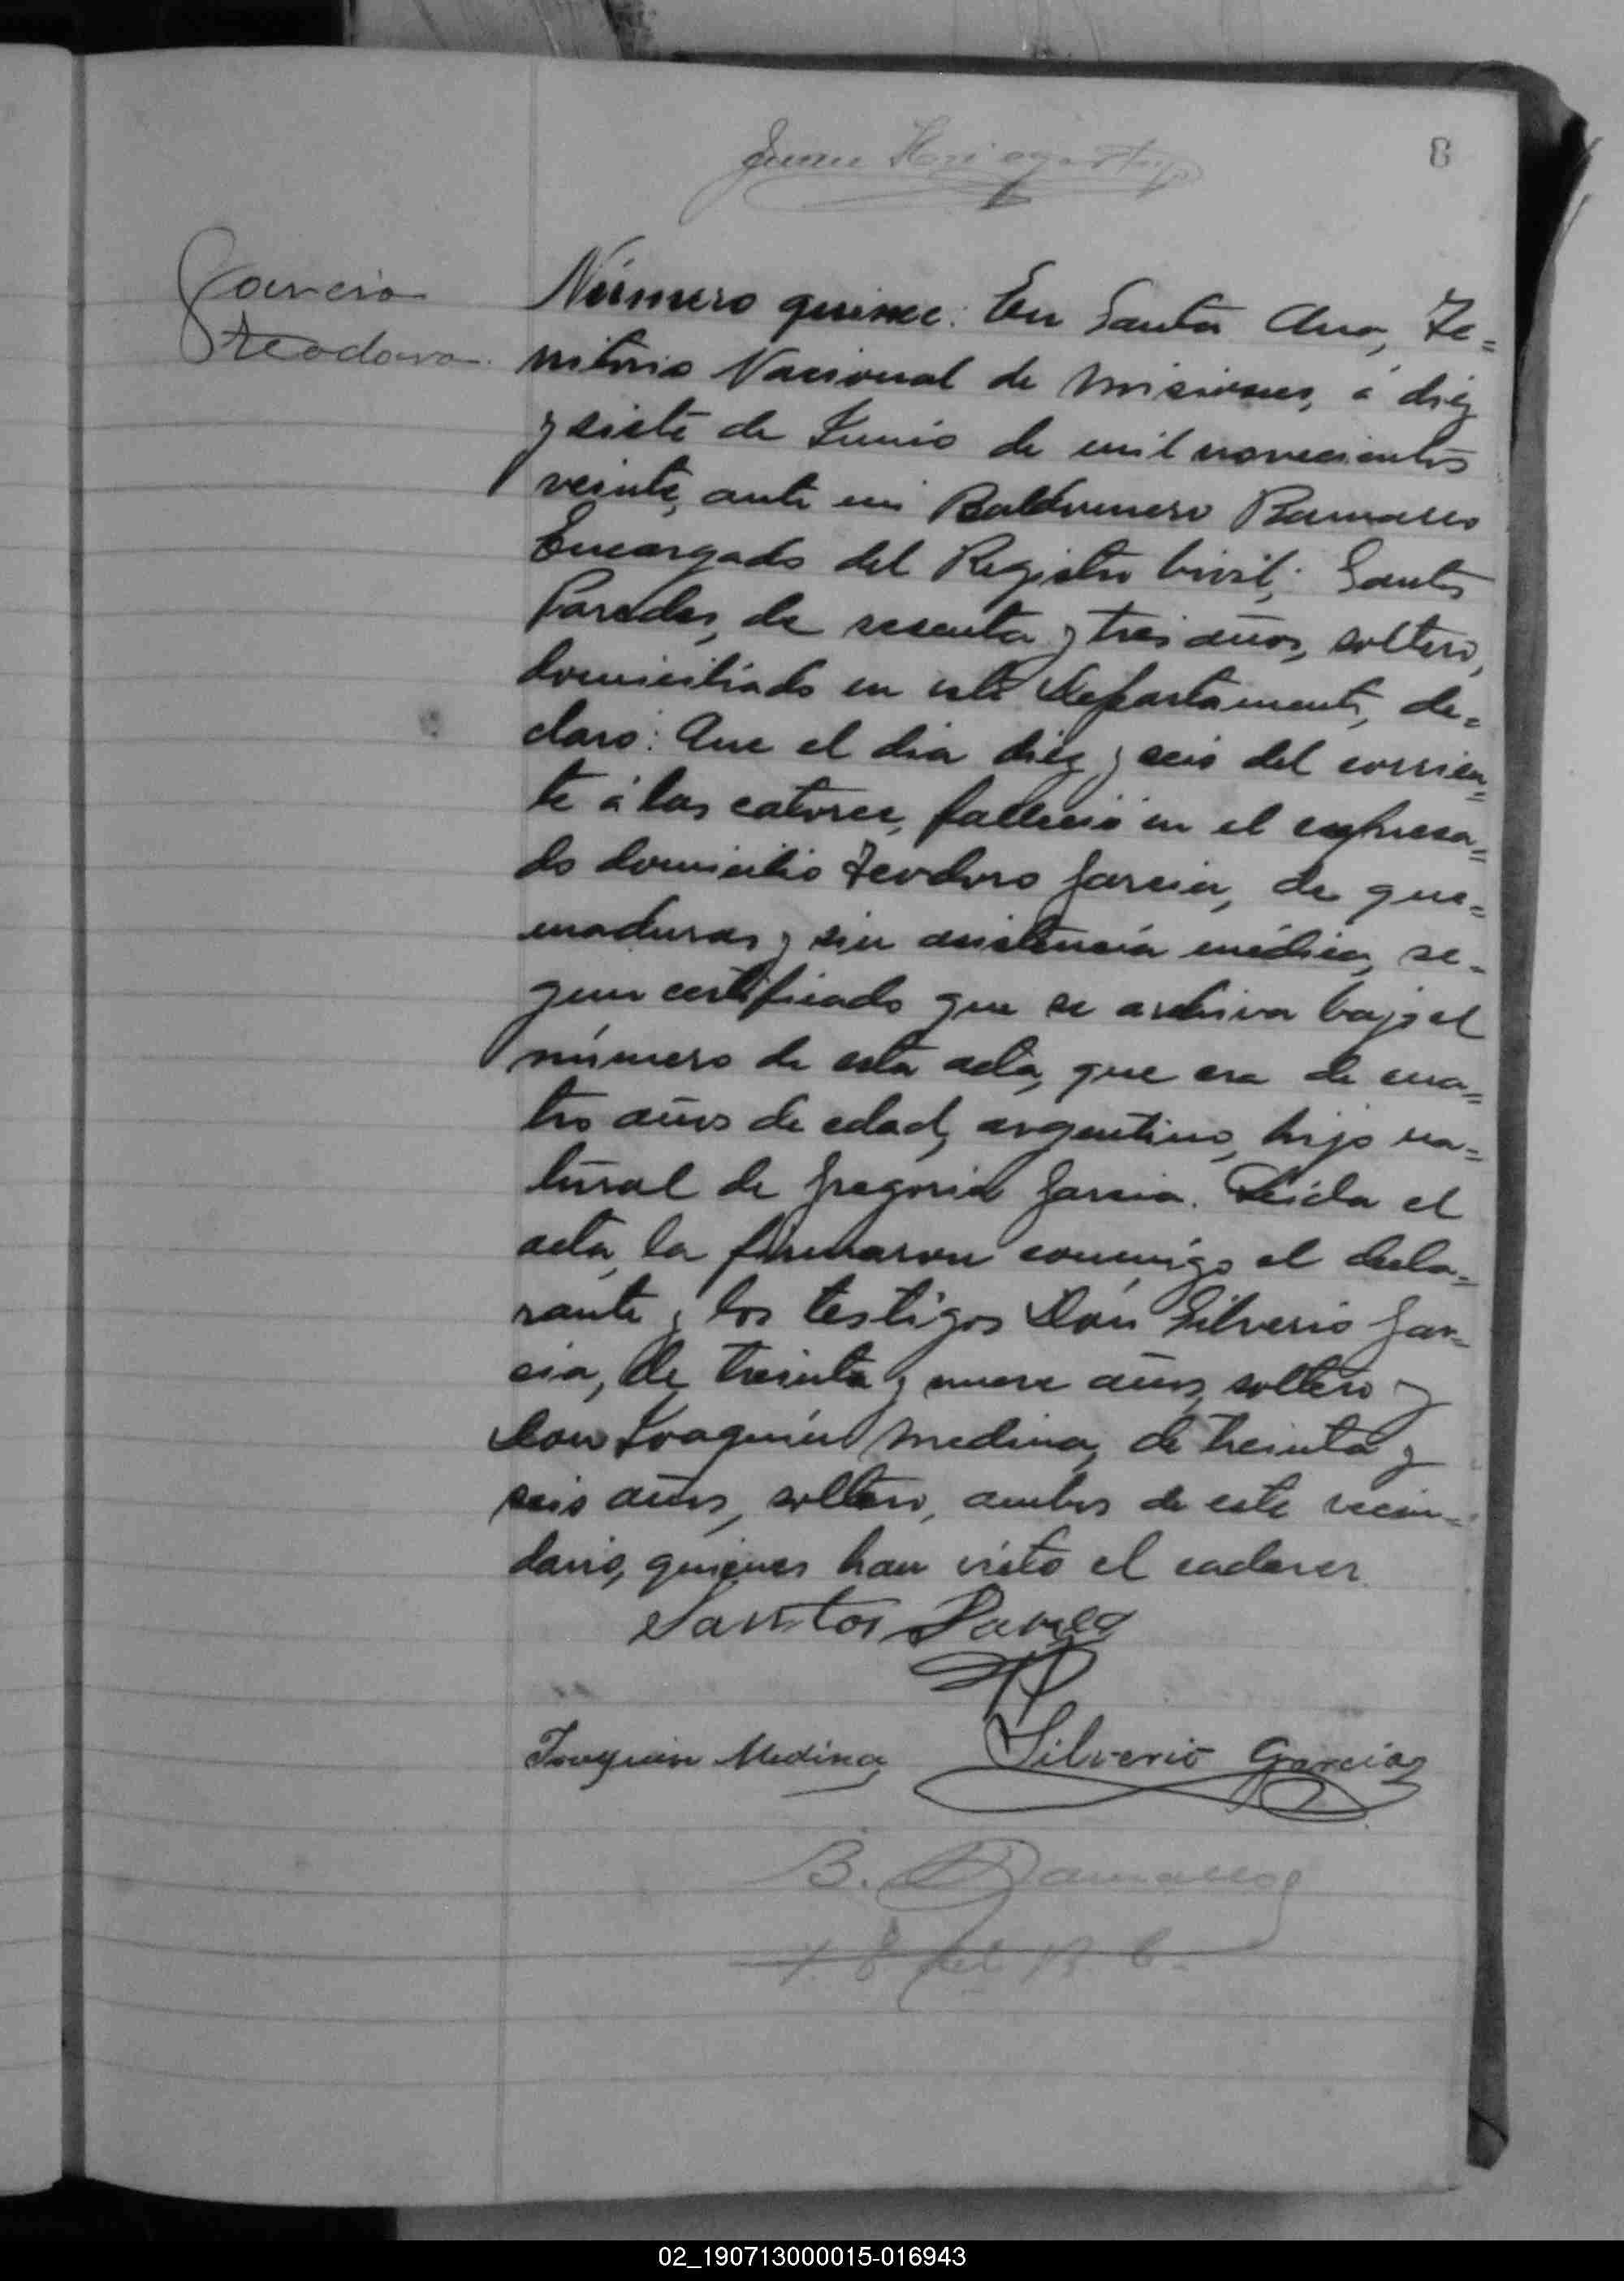 8
Garcia
Teodoro
Número quince: En Santa Ana, Te=
rritorio Nacional de Misiones, á diez
y siete de Junio de mil novecientos
veinte, ante mi Baldomero Ramallo
Encargado del Registro Civil; Santos
Paredes, de sesenta y tres años, soltero,
domiciliado en este Departamento, de=
claro: Que el dia diez y seis del corrien=
te á las catorce, falleció en el expresa=
do domicilio Teodoro Garcia, de que=
maduras y sin asistencia médica, se=
gun certificado que se archiva bajo el
número de esta acta, que era de cua=
tro años de edad, argentino, hijo na=
tural de Gregoria Garcia. Leida el
acta, la firmaron conmigo el decla=
rante y los testigos Don Silverio Gar=
cia, de treinta y nueve años, soltero y
Don Joaquín Medina, de treinta y
seis años, soltero, ambos de este vecin=
dario, quienes han visto el cadaver.
Santos Paredes
Joaquin Medina Silverio Garcia
B. Ramallo
02_190713000015-016943